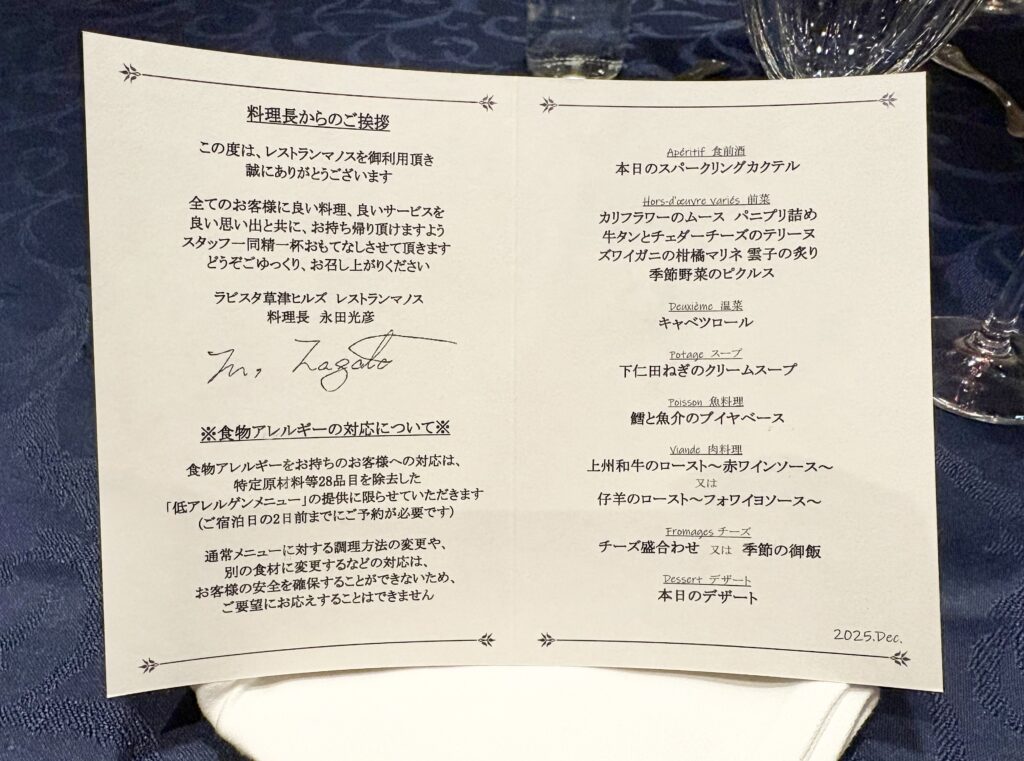 料理長からのご挨拶
この度は、レストランマノスを御利用頂き
誠にありがとうございます
全てのお客様に良い料理、良いサービスを
良い思い出と共に、お持ち帰り頂けますよう
スタッフ一同精一杯おもてなしさせて頂きます
どうぞごゆっくり、お召し上がりください
ラビスタ草津ヒルズ レストランマノス
料理長 永田光彦
M. Nagata
※食物アレルギーの対応について※
食物アレルギーをお持ちのお客様への対応は、
特定原材料等28品目を除去した
「低アレルゲンメニュー」の提供に限らせていただきます
(ご宿泊日の2日前までにご予約が必要です)
通常メニューに対する調理方法の変更や、
別の食材に変更するなどの対応は、
お客様の安全を確保することができないため、
ご要望にお応えすることはできません
Apéritif 食前酒
本日のスパークリングカクテル
Hors-d'œuvre variés 前菜
カリフラワーのムース パニプリ詰め
牛タンとチェダーチーズのテリーヌ
ズワイガニの柑橘マリネ 雲子の炙り
季節野菜のピクルス
Deuxième 温菜
キャベツロール
Potage スープ
下仁田ねぎのクリームスープ
Poisson 魚料理
鱈と魚介のブイヤベース
Viande 肉料理
上州和牛のロースト～赤ワインソース～
又は
仔羊のロースト～フォワイヨソース～
Fromages チーズ
チーズ盛合わせ 又は 季節の御飯
Dessert デザート
本日のデザート
2025.Dec.